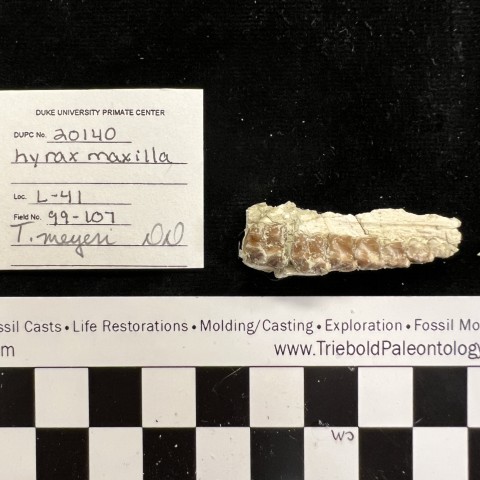 DUKE UNIVERSITY PRIMATE CENTER
DUPC No. 20140
hyrax maxilla
Loc. L-41
Field No. 99-107
T. meyeri DD
ssil Casts • Life Restorations • Molding/Casting • Exploration • Fossil Mo
m www.TrieboldPaleontology
CM